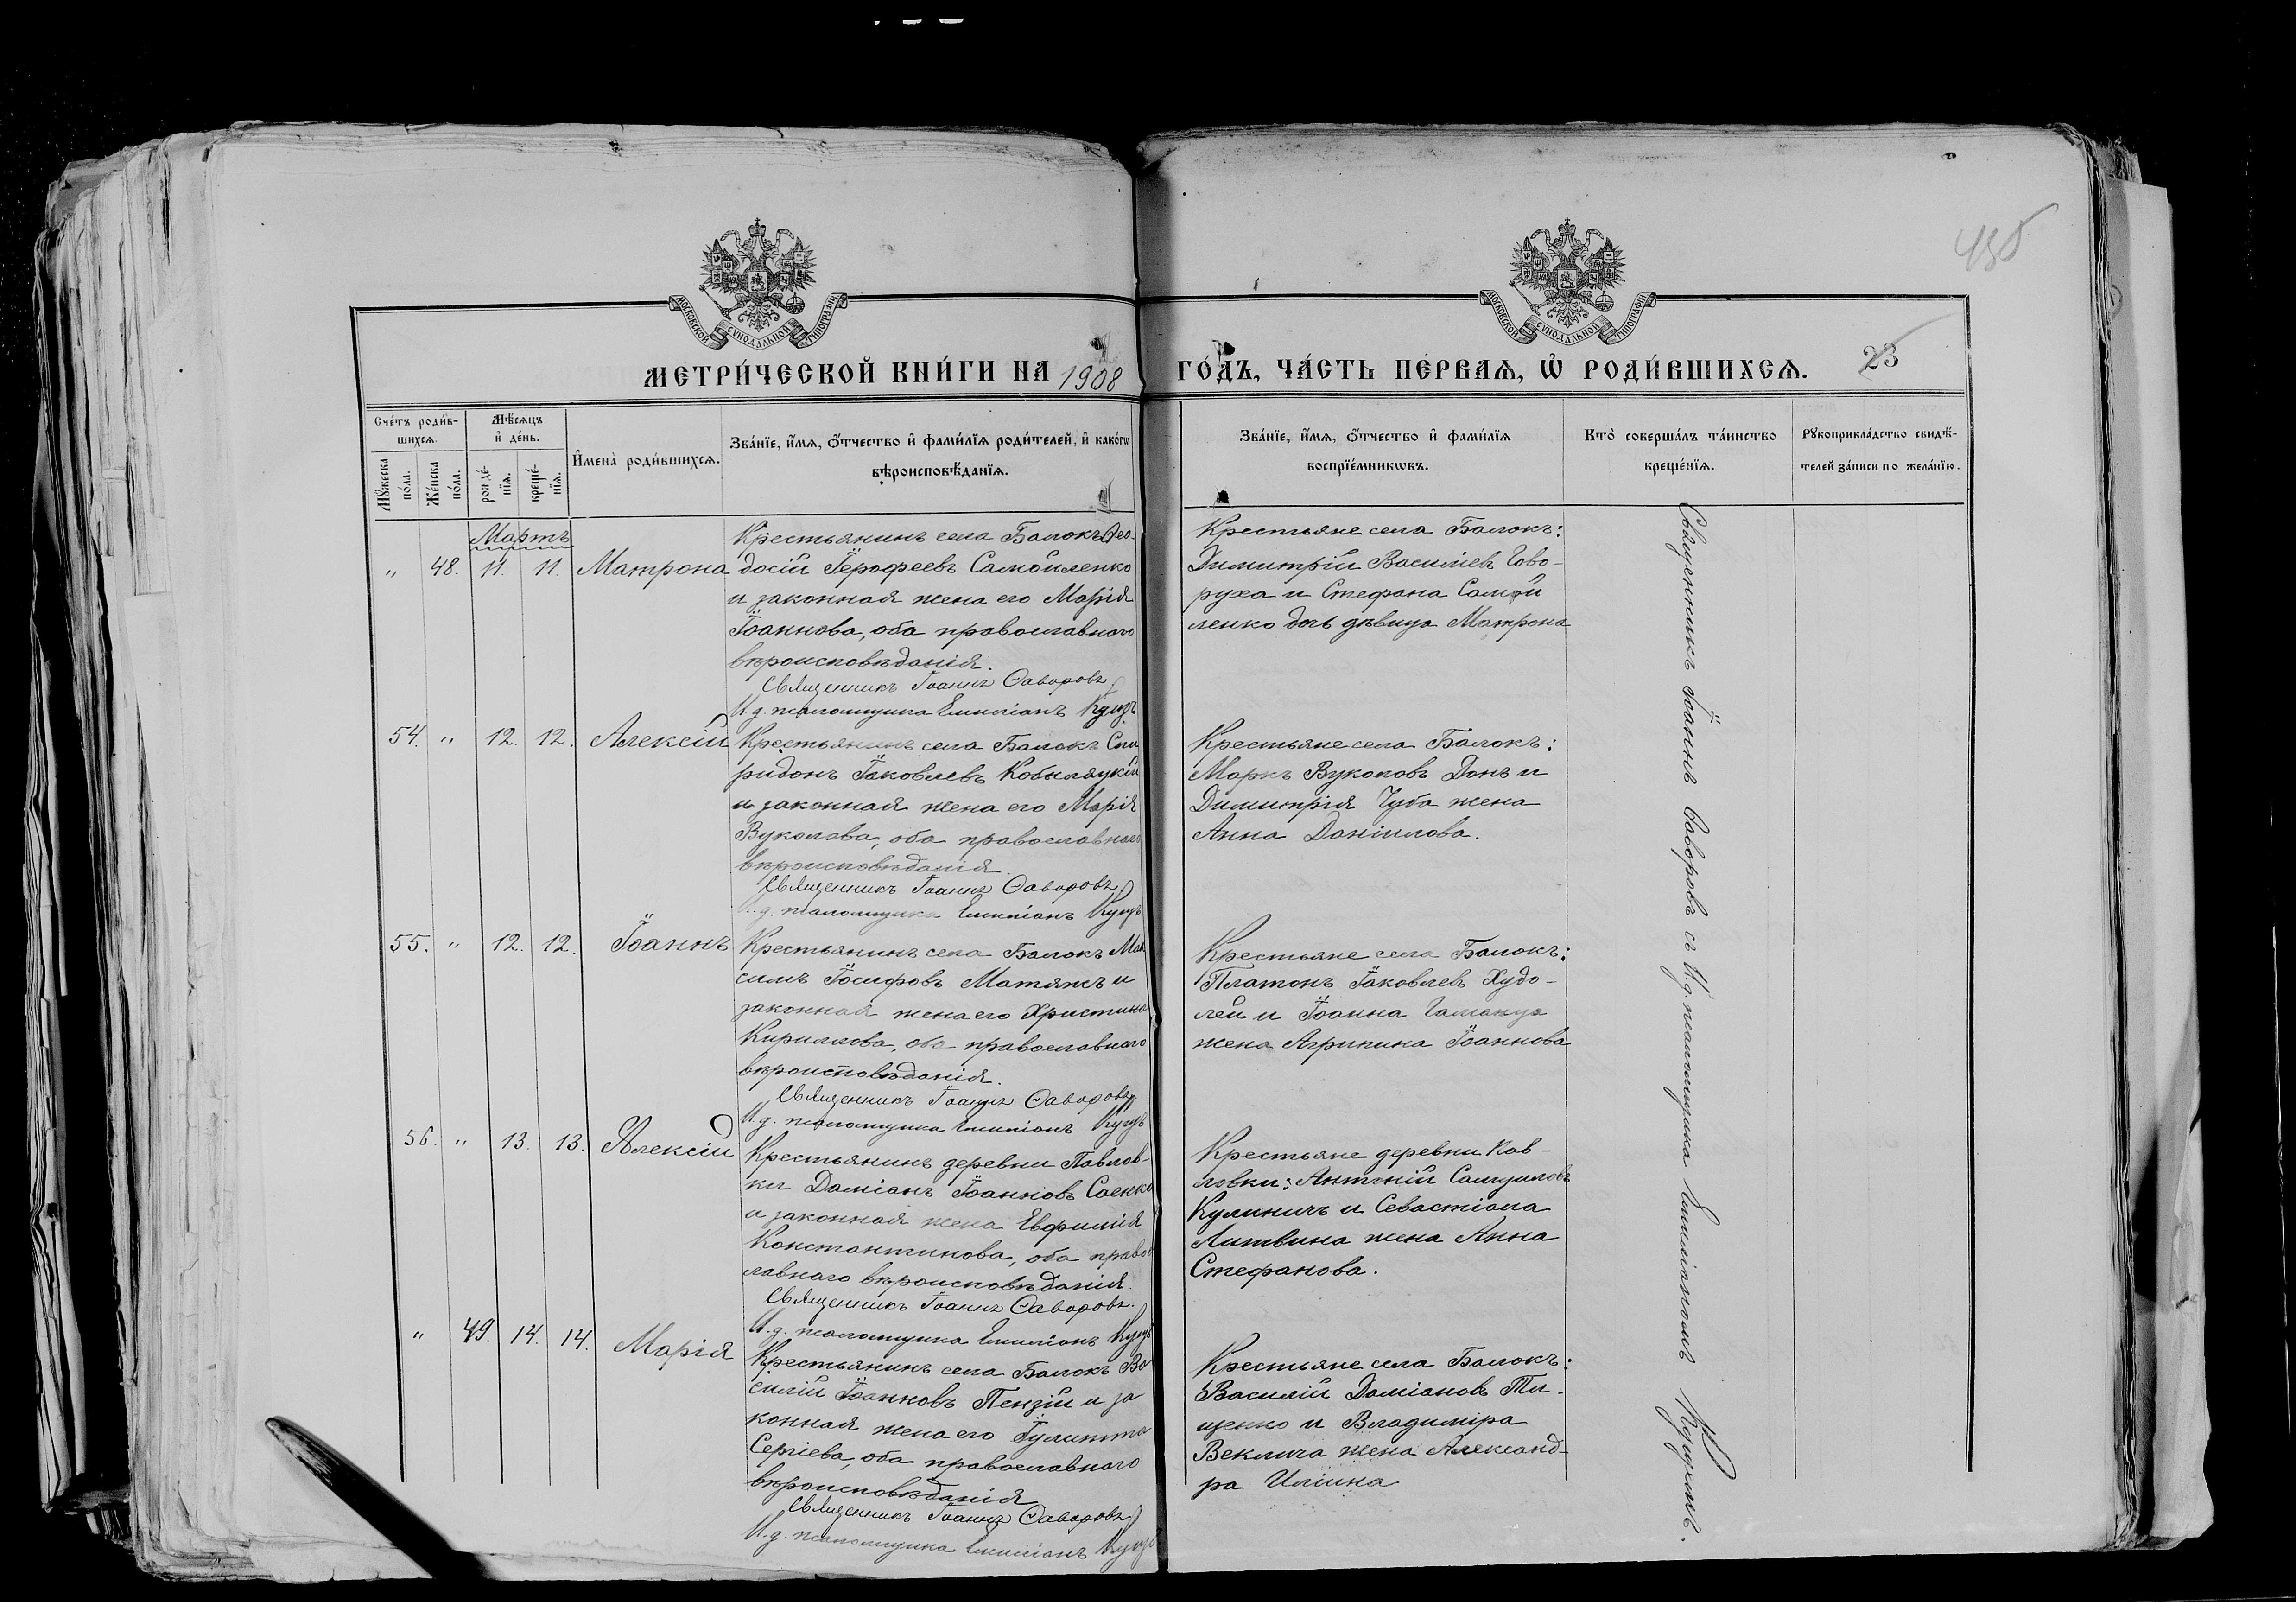 438
МОСКОВСКОЙ СѴНОДАЛЬНОЙ ТИПОГРАФІИ
МОСКОВСКОЙ СѴНОДАЛЬНОЙ ТИПОГРАФІИ
МЕТРИ́ЧЕСКОЙ КНИ́ГИ НА 1908 ГО́ДЪ, ЧА́СТЬ ПЕ́РВАѦ, Ѡ҆ РОДИ́ВШИХСѦ. 23
Сче́тъ роди́в-
шихсѧ.
Мꙋ́жеска по́ла.
Же́нска по́ла.
Мѣ́сѧцъ
и҆ де́нь.
рожде́-
нїѧ.
креще́-
нїѧ.
И҆мена̀ роди́вшихсѧ.
Зва́нїе, и҆́мѧ, ѻ҆́тчество и҆ фами́лїѧ роди́телей, и҆ како́гѡ
вѣроисповѣ́данїѧ.
Зва́нїе, и҆́мѧ, ѻ҆́тчество и҆ фами́лїѧ
воспрїе́мникѡвъ.
Кто̀ соверша́лъ та́инство
креще́нїѧ.
Рꙋкоприкла́дство свидѣ́-
телей за́писи по жела́нїю.
Мартъ
" 48. 11. 11. Матрона
Крестьянинъ села Балокъ Ѳео-
досій Іерофеевъ Самойленко
и законная жена его Марія
Іоаннова, оба православнаго
вѣроисповѣданія.
Священникъ Іоаннъ Ѳаворовъ
И. д. псаломщика Емиліанъ
Крестьяне села Балокъ:
Димитрій Василіев Гово-
руха и Стефана Самой
ленко дочь дѣвица Матрона
54. " 12. 12. Алексій
Крестьянинъ села Балокъ Спи
ридонъ Іаковлевъ Кобыляцкій
и законная жена его Марія
Вуколова, оба православнаго
вѣроисповѣданія.
Священникъ Іоаннъ Ѳаворовъ
И. д. псаломщика Емиліанъ
Крестьяне села Балокъ:
Маркъ Вуколовъ Донъ и
Димитрія Чуба жена
Анна Даніилова.
55. " 12. 12. Іоаннъ
Крестьянинъ села Балокъ Мак
симъ Іосифовъ Матяшъ и
законная жена его Христина
Кириллова, оба православнаго
вѣроисповѣданія.
Священникъ Іоаннъ Ѳаворовъ
И. д. псаломщика Емиліанъ
Крестьяне села Балокъ:
Платонъ Іаковлевъ Худо-
лей и Іоанна
жена Агрипина Іоаннова
56. " 13. 13. Алексій
Крестьянинъ деревни Павлов-
ки Даміанъ Іоанновъ Саенко
и законная жена Евфимія
Константинова, оба право
славнаго вѣроисповѣданія.
Священникъ Іоаннъ Ѳаворовъ.
И. д. псаломщика Емиліанъ
Крестьяне деревни Пав-
ловки: Антоній Самуиловъ
Кулиничъ и Севастіана
Литвина жена Анна
Стефанова.
" 49. 14. 14. Марія
Крестьянинъ села Балокъ Ва
силій Іоанновъ Пензій и за
конная жена его Іулитта
Сергіева, оба православнаго
вѣроисповѣданія
Священникъ Іоаннъ Ѳаворовъ
И. д. псаломщика Емиліанъ
Крестьяне села Балокъ:
Василій Даміановъ Ти-
щенко и Владиміра
Веклича жена Александ-
ра Иліина
Священникъ Іоаннъ Ѳаворовъ съ И. д. псаломщика Емиліаномъ